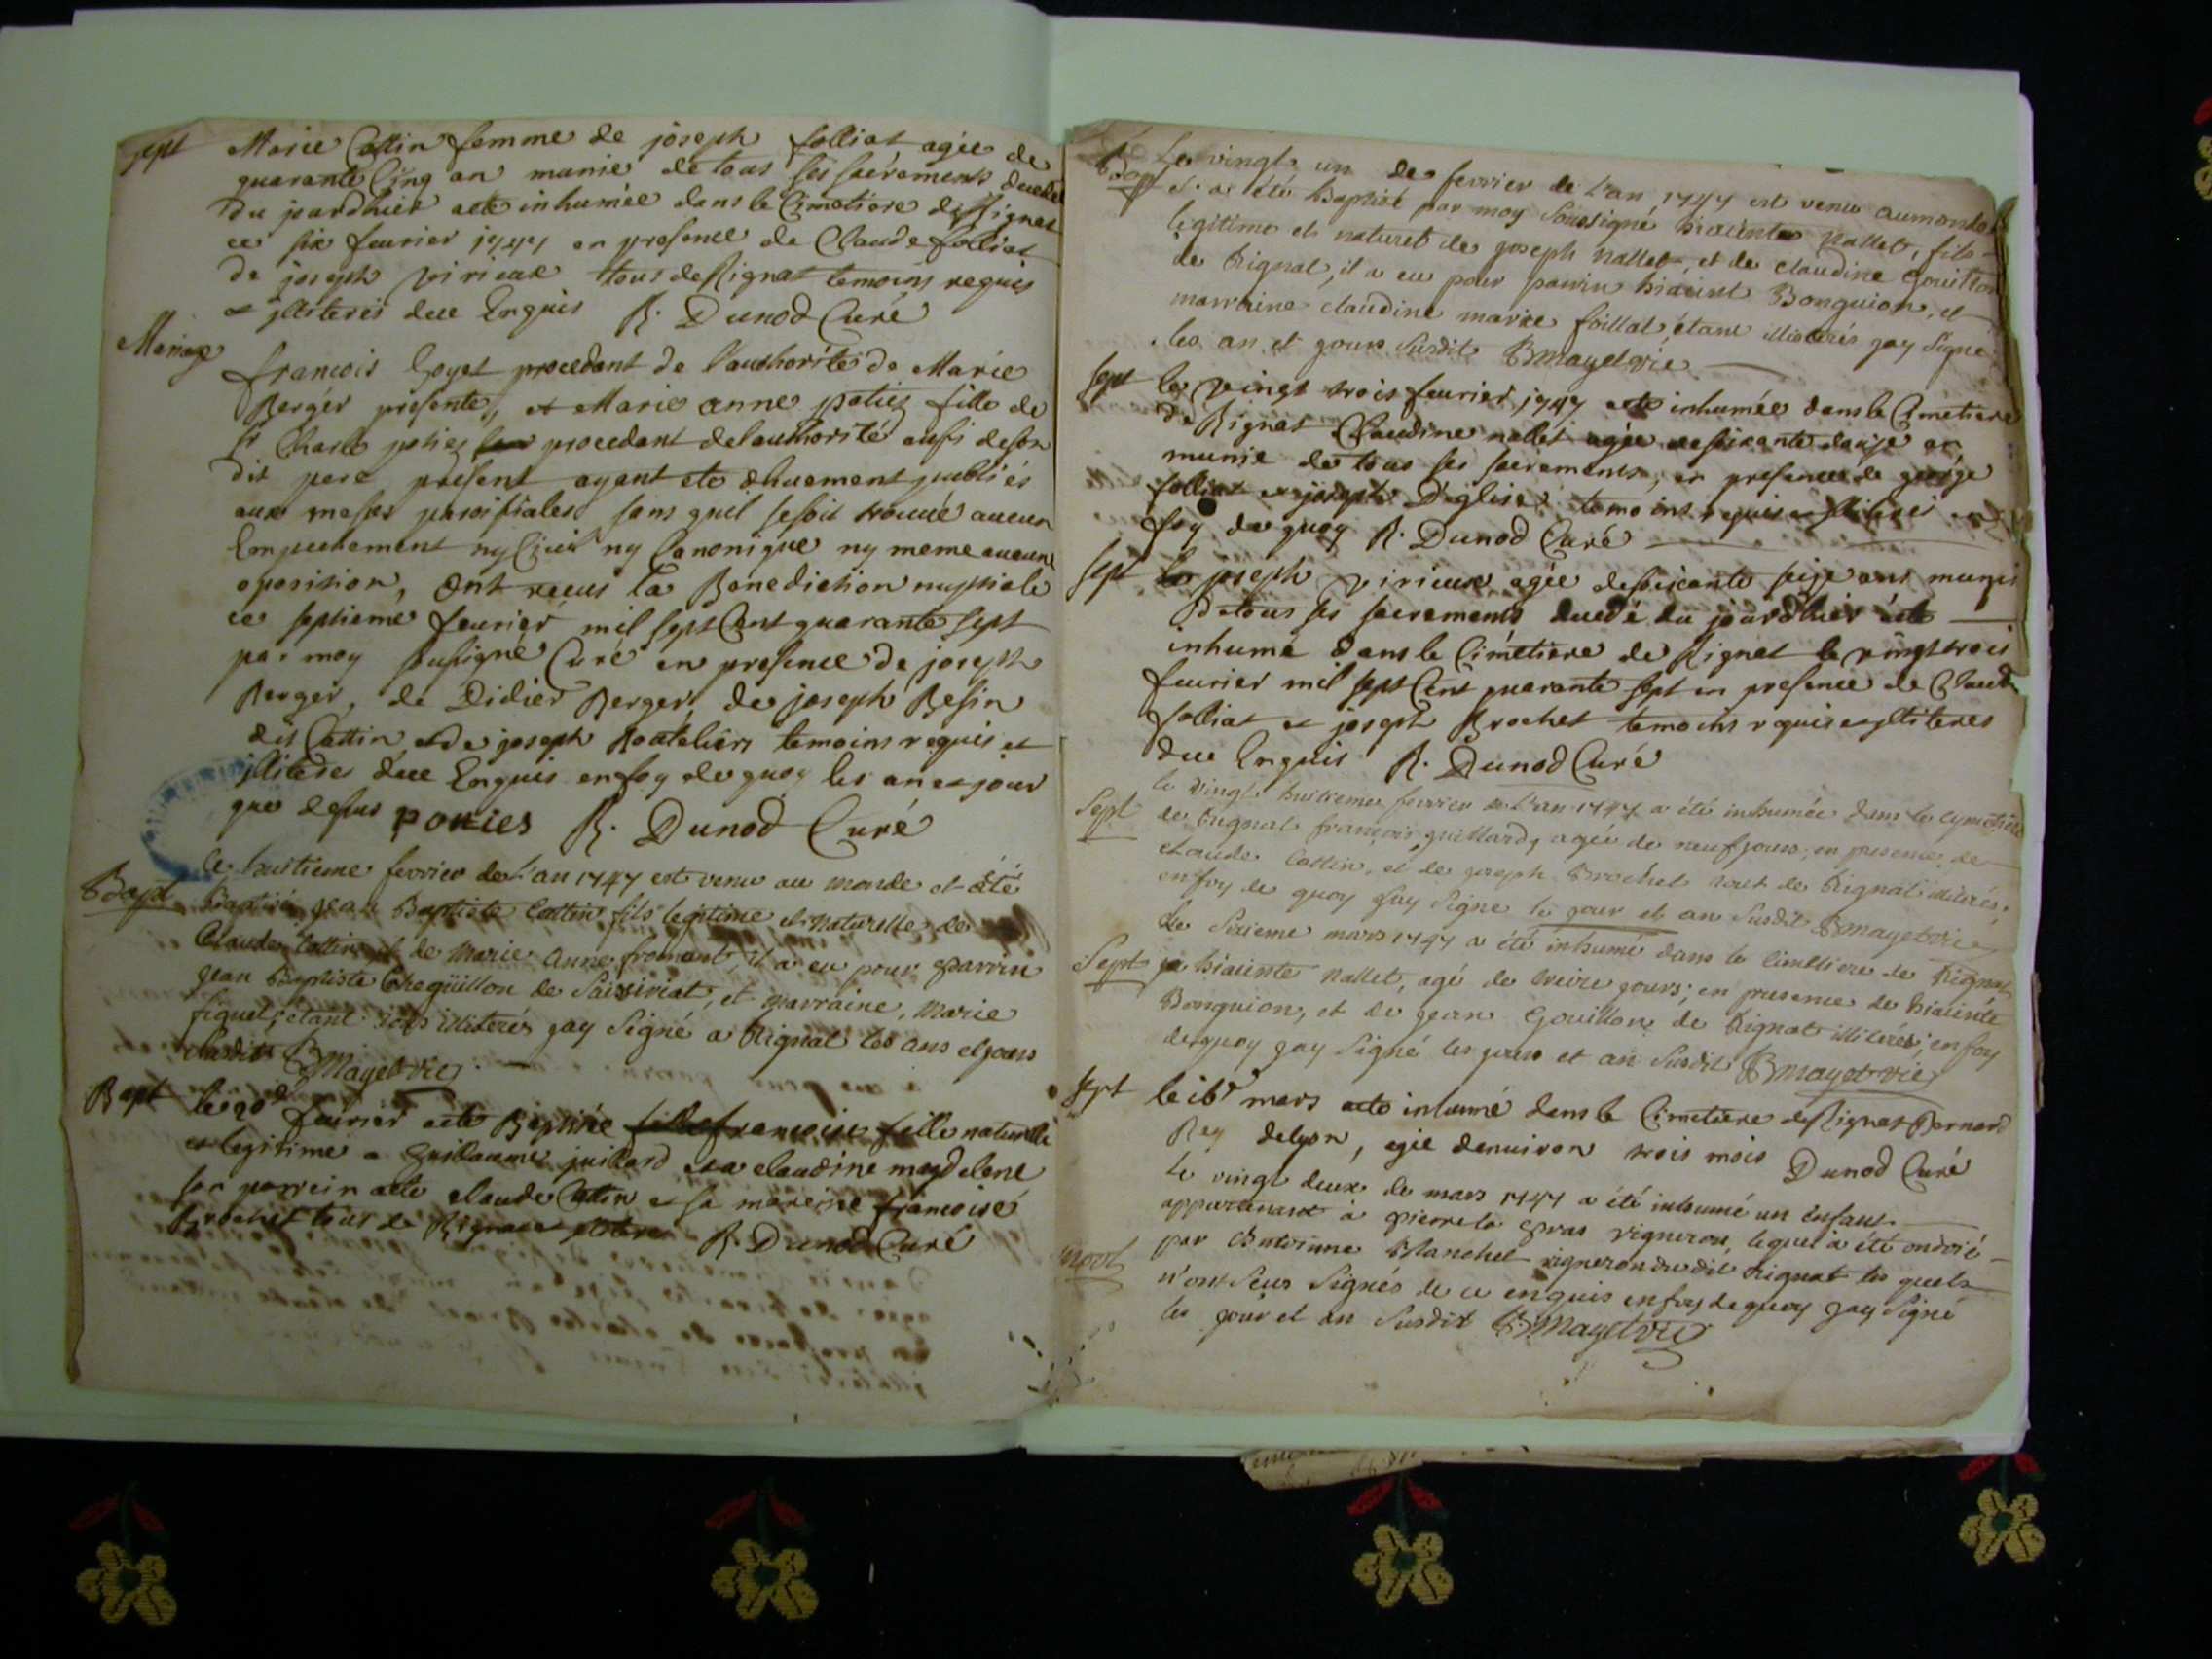 Sept Marie Cattin femme de joseph folliat agée de
quarante Cinq an munie de tous ses sacrements
du jourdhier aete inhumée dans le Cimetiere de Rignat
ce six feurier 1747 en presence de Claude folliat
de joseph virieux tous de Rignat temoins requis
et jlliteres due Enquis R. Dunod Curé
Mariage francois Goyet procedant de l'authorité de Marie
Berger presente, et Marie anne poties fille de
Sr Charle poties procedant delauthorité ausi deson
dit pere present ayant ete dhuement publiés
aux messes paroissiales sans quil sesoit trouué aucun
Empechement ny Ciuil ny Canonique ny meme aucune
oposition, Ont recus la Benediction nuptiale
ce septieme feurier mil sept Cent quarante sept
par moy sousigné Curé en presence de joseph
Berger, de Didier Berger, de joseph Resin
dit Cattin et de joseph temoins requis et
jlliteres due Enquis enfoy de quoy les an et jour
que desus poties R. Dunod Curé
Bapt le huitieme fevrier de l'an 1747 est venu au monde et été
Baptisé jean Baptiste Cattin fils legitime et naturelle de
Claude Cattin et de Marie Anne froment, il a eu pour parrin
jean Baptiste Cheguillon de Saixiriat, et marraine, Marie
figuet, étant tous illiterés jay Signé a Rignat les ans et jours
susdits BMayet vic
Bapt le 20d feurier aete Baptisée fille francoise feille naturelle
et legitime a Guillaume juillard et a claudine magdelene
son parrein aete claude Catin et sa mareine francoise
Brochet tous de Rignat R. Dunod Curé
Bapt Le vingt un de fevrier de l'an 1747 est venu aumonde
et a été Baptisé par moy Sousigné hiacinte Nallet, fils
legitime et naturel de joseph Nallet, et de claudine Gouillon
de Rignat, il a eu pour parrin hiacint Bonguion, et
marraine claudine marie foillat, étant illiterés jay Signé
les an et jours Susdit BMayet vic
Sept le vingt trois feurier 1747 aete inhumée dans le Cimetiere
de Rignat Claudine nallet agée de soixante douze an
munie de tous ses sacrements, en presence de george
folliat et joseph D'eglise temoins requis et en
foy de quoy R. Dunod Curé
Sept le joseph virieux agée desoixante seize ans munis
detous ses sacrements decedé du jourdhier aete
inhumé dans le Cimetiere de Rignat le vingt trois
feurier mil sept Cent quarante sept en presence de Claude
folliat et joseph Brochet temoins requis et jlliteres
due Enquis R. Dunod Curé
Sept le vingt huitieme fevrier de l'an 1747 a été inhumée dans le cymetiere
de Rignat francois guillard, agée de neuf jours, en presence de
claude Cattin, et de joseph Brochet tout de Rignat illiterés,
en foy de quoy jay Signe le jour et an Susdit BMayet vic
Sept Le Sixieme mars 1747 a été inhumé dans le Cimettiere de Rignat
hiacinte Nallet, agé de treize jours, en presence de hiacinte
Bonguion, et de jean Gouillon de Rignat illiterés, en foy
de quoy jay Signé les jour et an Susdit BMayet vic
Sept le 16e mars aete inhumé dans le Cimetiere de Rignat Bernard
Rey delyon, agée denuiron trois mois Dunod Curé
Le vingt deux de mars 1747 a été inhumé un enfant
appartenant à pierre la vigneron, lequel a été ondoié
par Antoinne Blanchet vigneron dudit Rignat les quels
n'ont Seus Signés de ce enquis en foy de quoy jay Signé
les jour et an Susdit BMayet vic